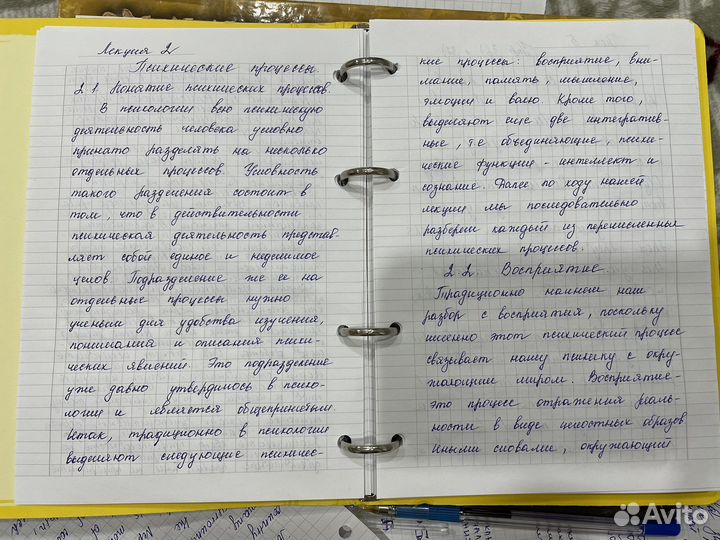 Лекция 2
Психические процессы.
2.1. Понятие психических процессов.
В психологии всю психическую
деятельность человека условно
принято разделять на несколько
отдельных процессов. Условность
такого разделения состоит в
том, что в действительности
психическая деятельность представ-
ляет собой единое и неделимое
целое. Подразделение же ее на
отдельные процессы нужно
ученым для удобства изучения,
понимания и описания психи-
ческих явлений. Это подразделение
уже давно утвердилось в психо-
логии и является общепринятым.
Итак, традиционно в психологии
выделяют следующие психичес-
кие процессы: восприятие, вни-
мание, память, мышление,
эмоции и волю. Кроме того,
выделяют еще две интегратив-
ные, т.е. объединяющие, психи-
ческие функции - интеллект и
сознание. Далее по ходу нашей
лекции мы последовательно
разберем каждый из перечисленных
психических процессов.
2.2. Восприятие.
Традиционно начнем наш
разбор с восприятия, поскольку
именно этот психический процесс
связывает нашу психику с окру-
жающим миром. Восприятие-
это процесс отражения реаль-
ности в виде целостных образов
Иными словами, окружающий
Avito